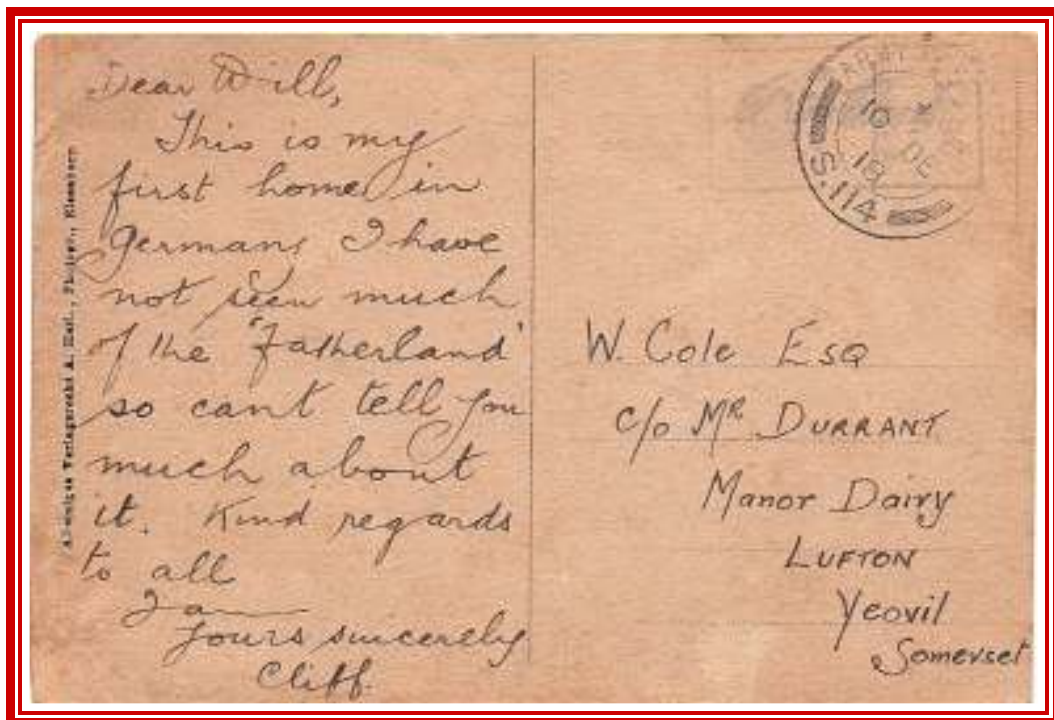 Dear Will,
This is my
first home in
Germany I have
not seen much
of the 'Fatherland'
so cant tell you
much about
it. Kind regards
to all
I am
Yours sincerely
Cliff.
10
DE
18
S.114
W. Cole Esq
c/o Mr Durrant
Manor Dairy
Lufton
Yeovil
Somerset